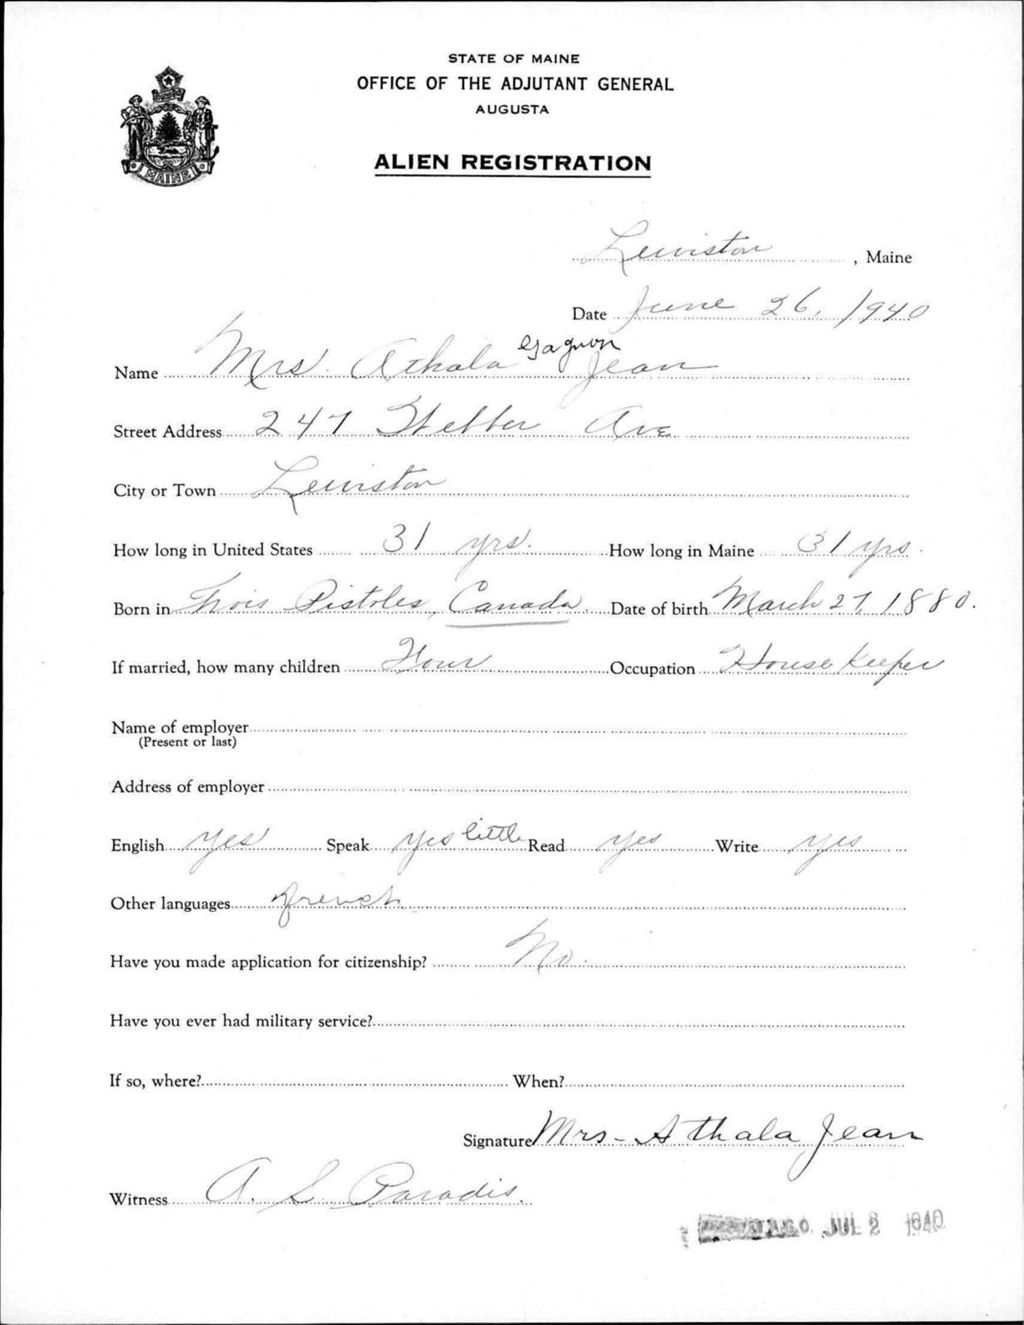 STATE OF MAINE
OFFICE OF THE ADJUTANT GENERAL
AUGUSTA
MAINE
ALIEN REGISTRATION
Lewiston, Maine
Date June 26, 1940
Gagnon
Name Mrs. Athala Jean
Street Address 247 Webber Ave
City or Town Lewiston
How long in United States 31 yrs. How long in Maine 31 yrs.
Born in Trois Pistoles, Canada. Date of birth March 27 1880.
If married, how many children Four Occupation House Keeper
Name of employer
(Present or last)
Address of employer
English yes Speak yes little Read yes Write yes
Other languages french
Have you made application for citizenship? No.
Have you ever had military service?
If so, where? When?
Signature Mrs- Athala Jean
Witness A. S. Paradis.
JUL 2 1940